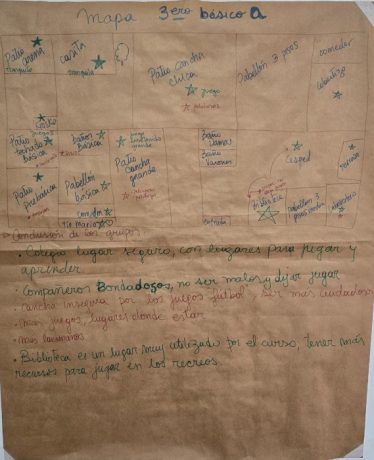 Mapa 3ero básico A
Patio arena
tranquilo
casita
tranquila
Patio cancha chica
juego
Pabellón 3 pisos
comedor
Kiosko
juegos
Patio techado básica
baños básica
Patio cancha grande
Baño Damas
Baño Varones
Cesped
Patio Prebásica
Pabellón básica
comedor
Tío Mario
entrada
Pabellón 3 pisos
Conclusión de los grupos
• Colegio lugar seguro, con lugares para jugar y
aprender
• Compañeros Bondadosos, no ser malos y dejar jugar
• cancha insegura por los juegos fútbol, ser mas cuidadosos
• mas juegos, lugares donde estar
• mas
• Biblioteca es un lugar muy utilizado por el curso, tener más
recursos para jugar en los recreos